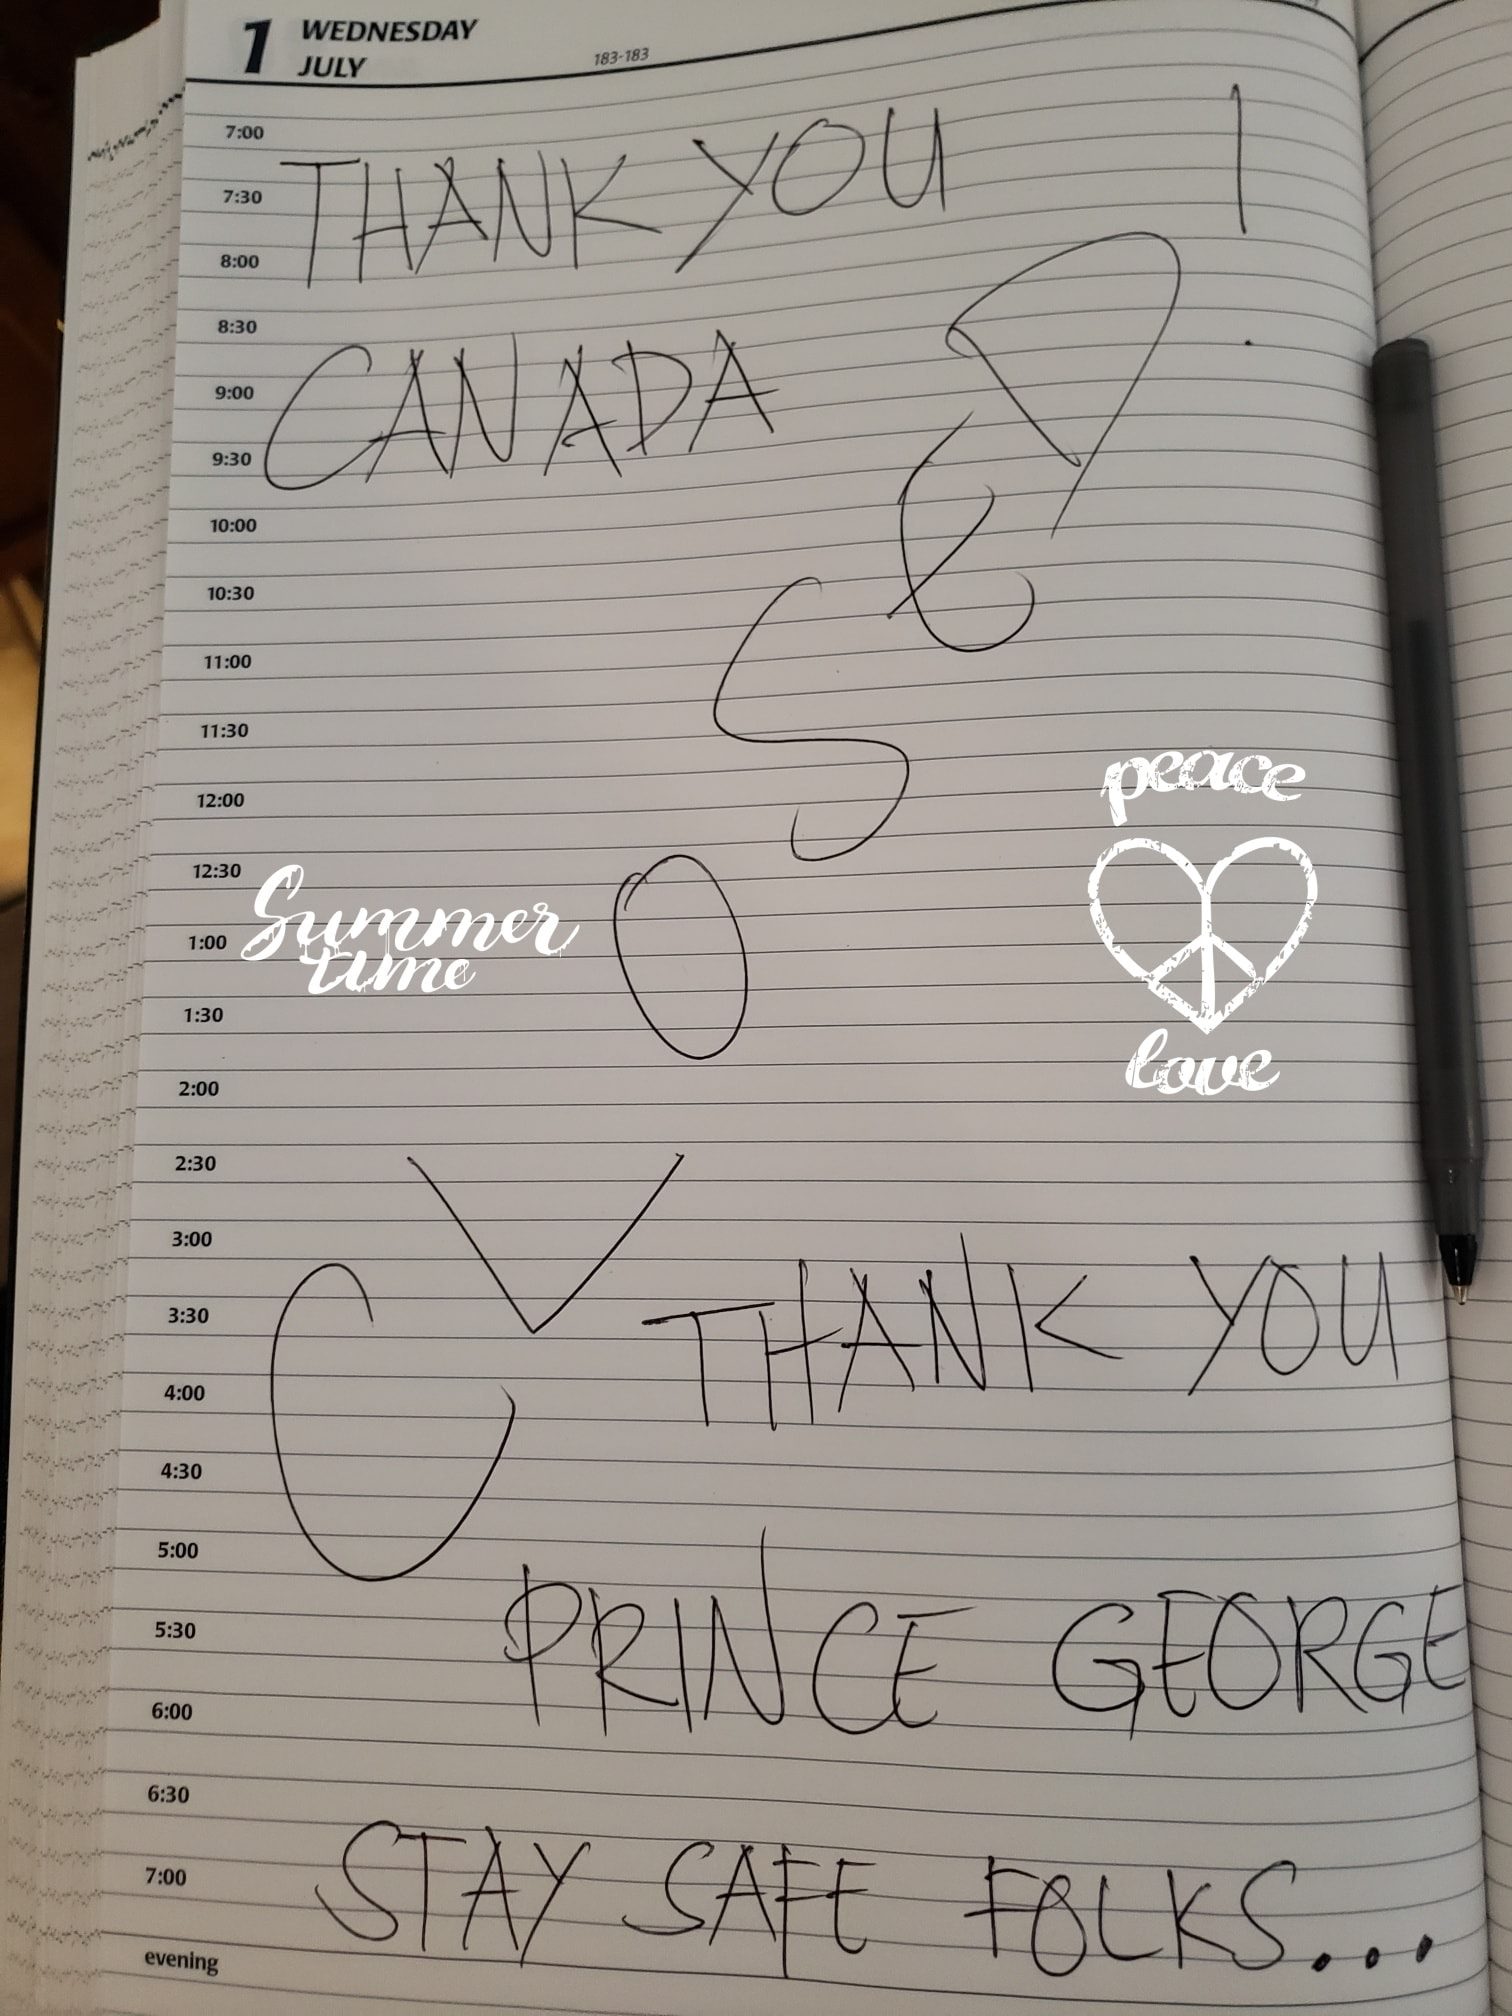 1 WEDNESDAY
JULY
183-183
7:00
7:30
8:00
8:30
9:00
9:30
10:00
10:30
11:00
11:30
12:00
12:30
1:00
1:30
2:00
2:30
3:00
3:30
4:00
4:30
5:00
5:30
6:00
6:30
7:00
evening
THANK YOU
CANADA
CLOSeD!
Summer
time
peace
love
THANK YOU
PRINCE GEORGE
STAY SAFE FOLKS...